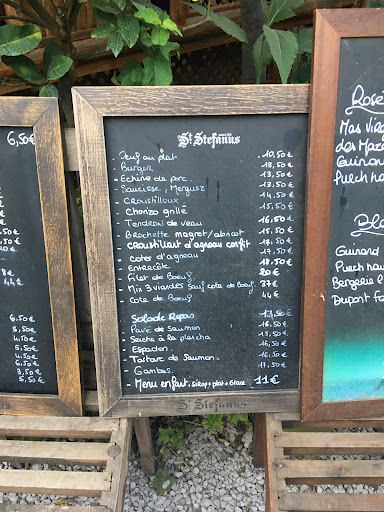 6,50€
St Stefanus
- Oeuf au plat 10,50€
- Burger 18,50€
- Echine de porc 13,50€
- Saucisse, Merguez 13,50€
- Croustilloux 14,50€
- Chorizo grillé 15,50€
- Tendrons de veau 16,50€
- Brochette magret/abricot
- Croustillant d'agneau confit
- Cotes d'agneau 17,50€
- Entrecôte 18,50€
- Filet de Boeuf 20€
- Mix 3 viandes sauf cote de boeuf 37€
- Cote de Boeuf 44€
- Salade Repas 13,50€
- Pavé de Saumon 16,50€
- Seiche à la plancha
- Espadon
- Tartare de Saumon
- Gambas 17,50€
- Menu enfant. sirop + plat + Glace 11€
St Stefanus
6.50€
5,50€
4.50€
6.50€
5,50€
5,50€
Rosé
Mas Vire
des Ma
Guinard
Puech ha
Guinard
Puech hau
Bergerie
Dupont fa